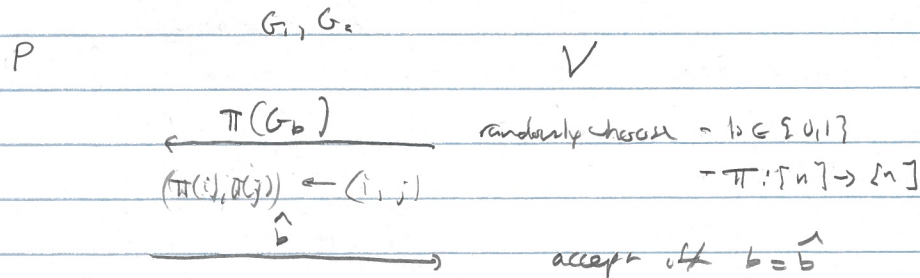 G₁, G₂
P V
π(G_b) randomly choose - b ∈ {0,1}
(π(i), π(j)) ← (i, j) - π: [n] → [n]
b̂ accept iff b = b̂